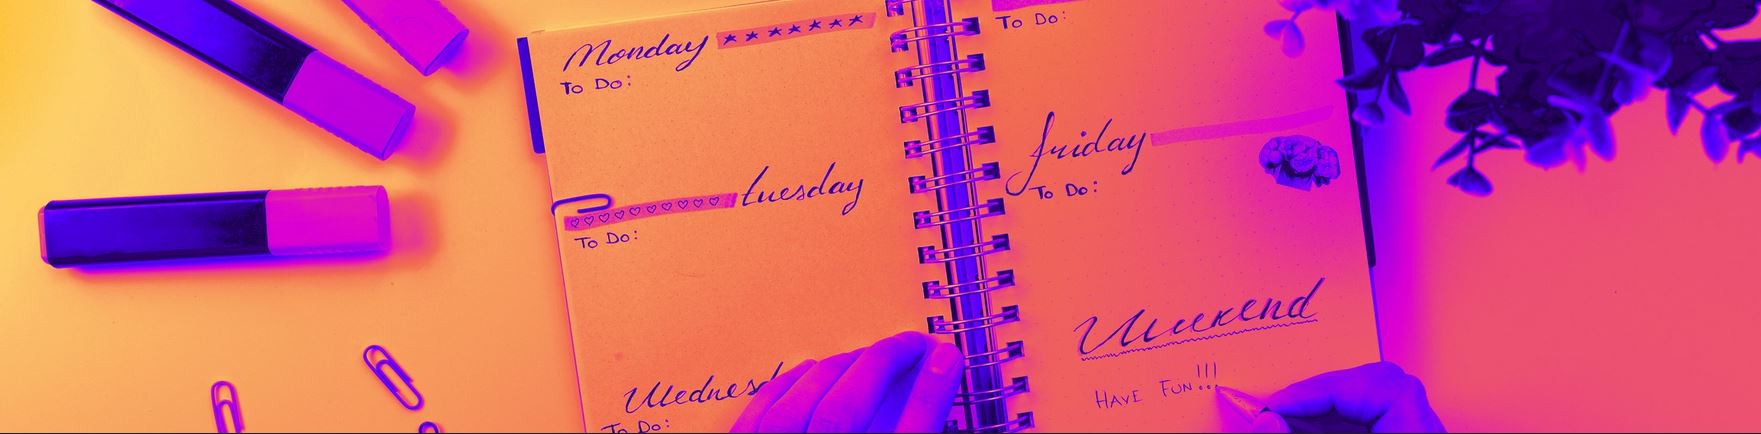 Monday
To Do:
tuesday
To Do:
Wednesd
To Do:
To Do:
friday
To Do:
Weekend
HAVE FUN!!!